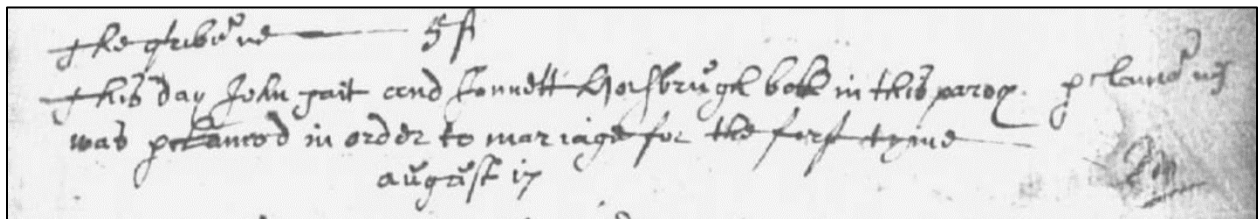 The contribu̅ne — 5 ß
This day John pait and Jonnett Horsbrugh both in this paroq.
was p̄clamed in order to mariage for the forst tyme
august 17